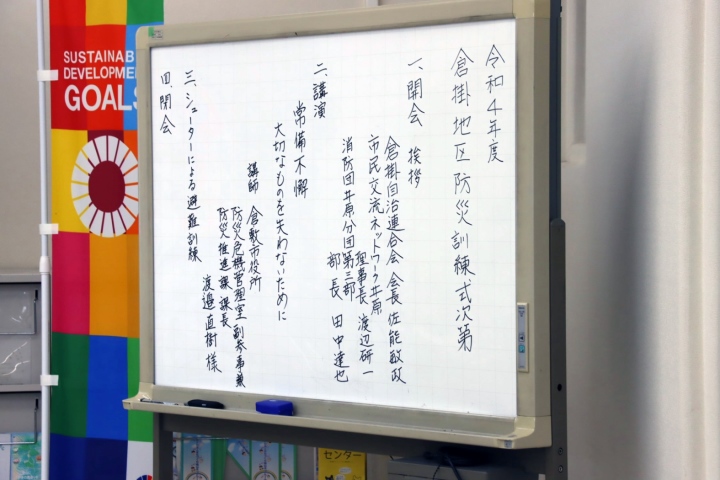 令和4年度
倉掛地区防災訓練式次第
一、開会 挨拶
倉掛自治連合会 会長 佐能敏政
市民交流ネットワーク井原
理事長 渡辺研一
消防団井原分団第三部
部長 田中達也
二、講演
常備不懈
大切なものを失わないために
講師 倉敷市役所
防災危機管理室副参事兼
防災推進課課長
渡邉直樹様
三、シューターによる避難訓練
四、閉会
SUSTAINAB
DEVELOPME
GOALS
センター